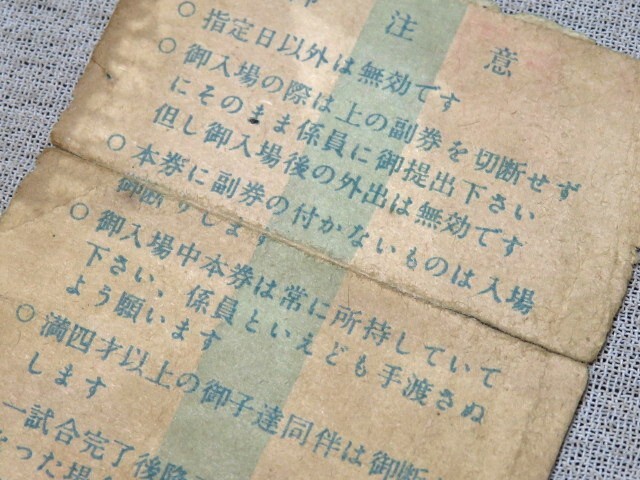 注意
○指定日以外は無効です
○御入場の際は上の副券を切断せず
にそのまま係員に御提出下さい
但し御入場後の外出は無効です
○本券に副券の付かないものは入場
御断りします
○御入場中本券は常に所持していて
下さい、係員といえども手渡さぬ
よう願います
○満四才以上の御子達同伴は御断
します
一試合完了後降
った場合